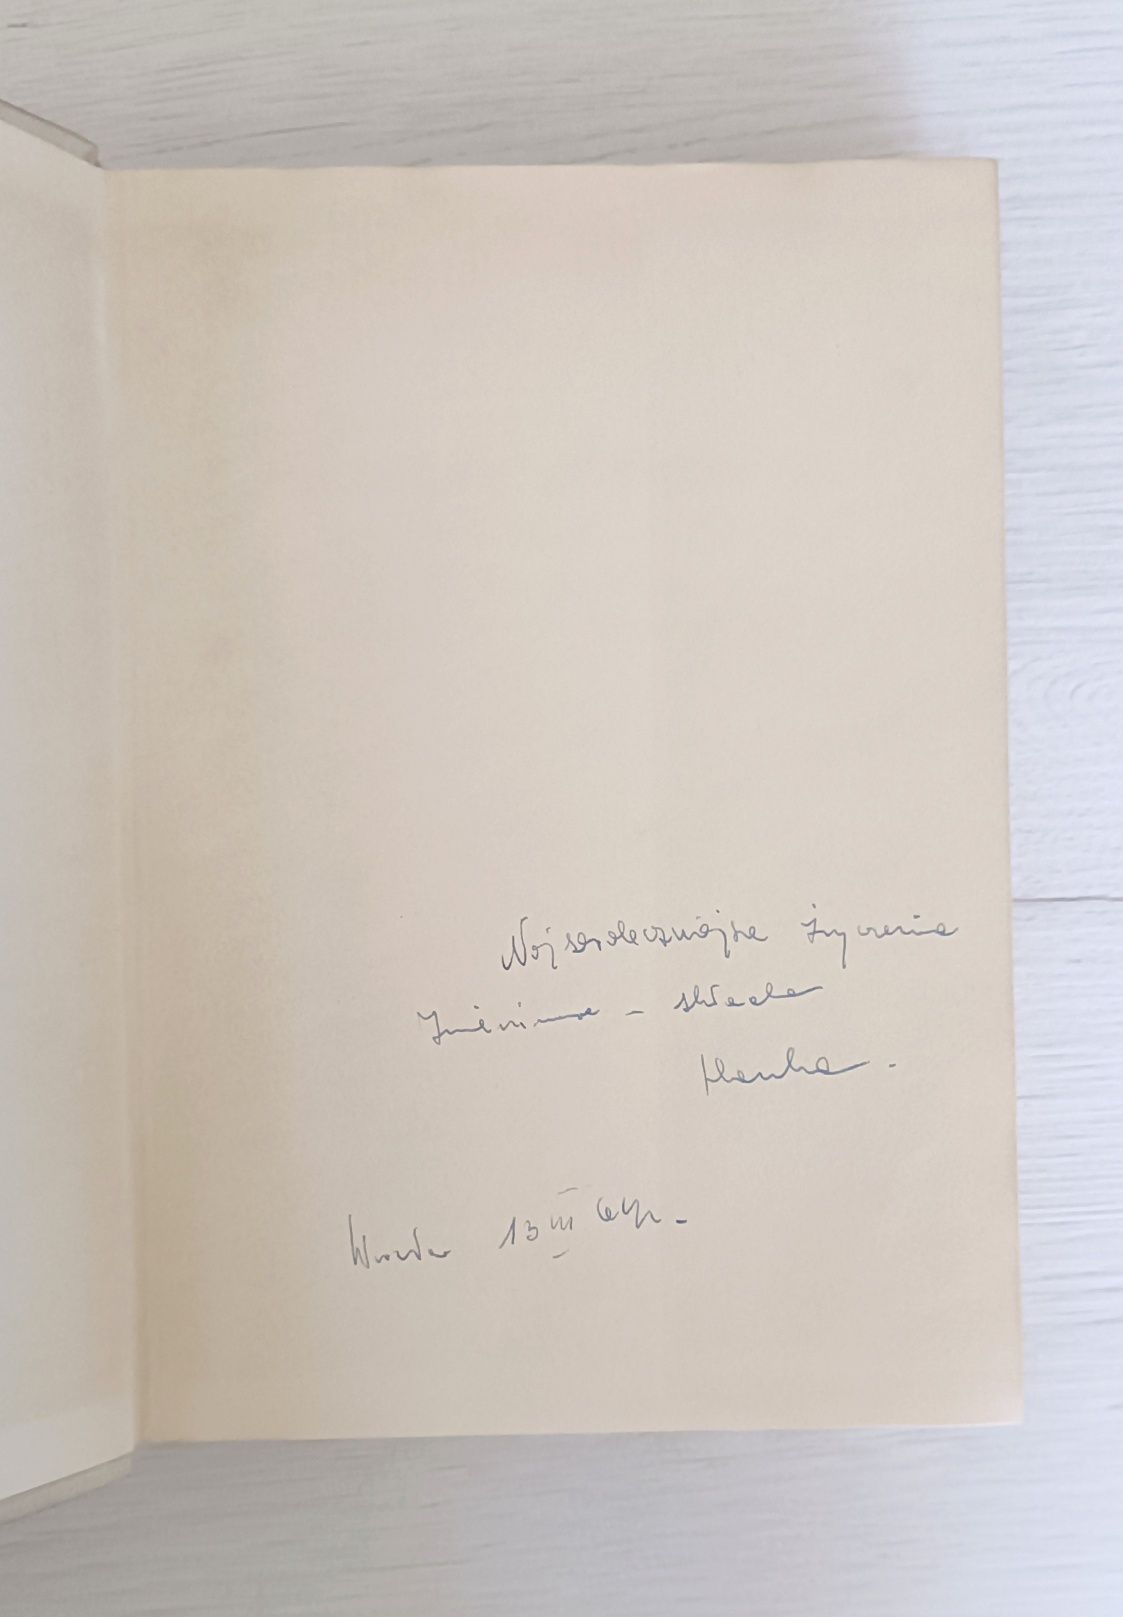 Najserdeczniejsze życzenia
Imieninowe – składa
Hanka.
13 III 64 r.